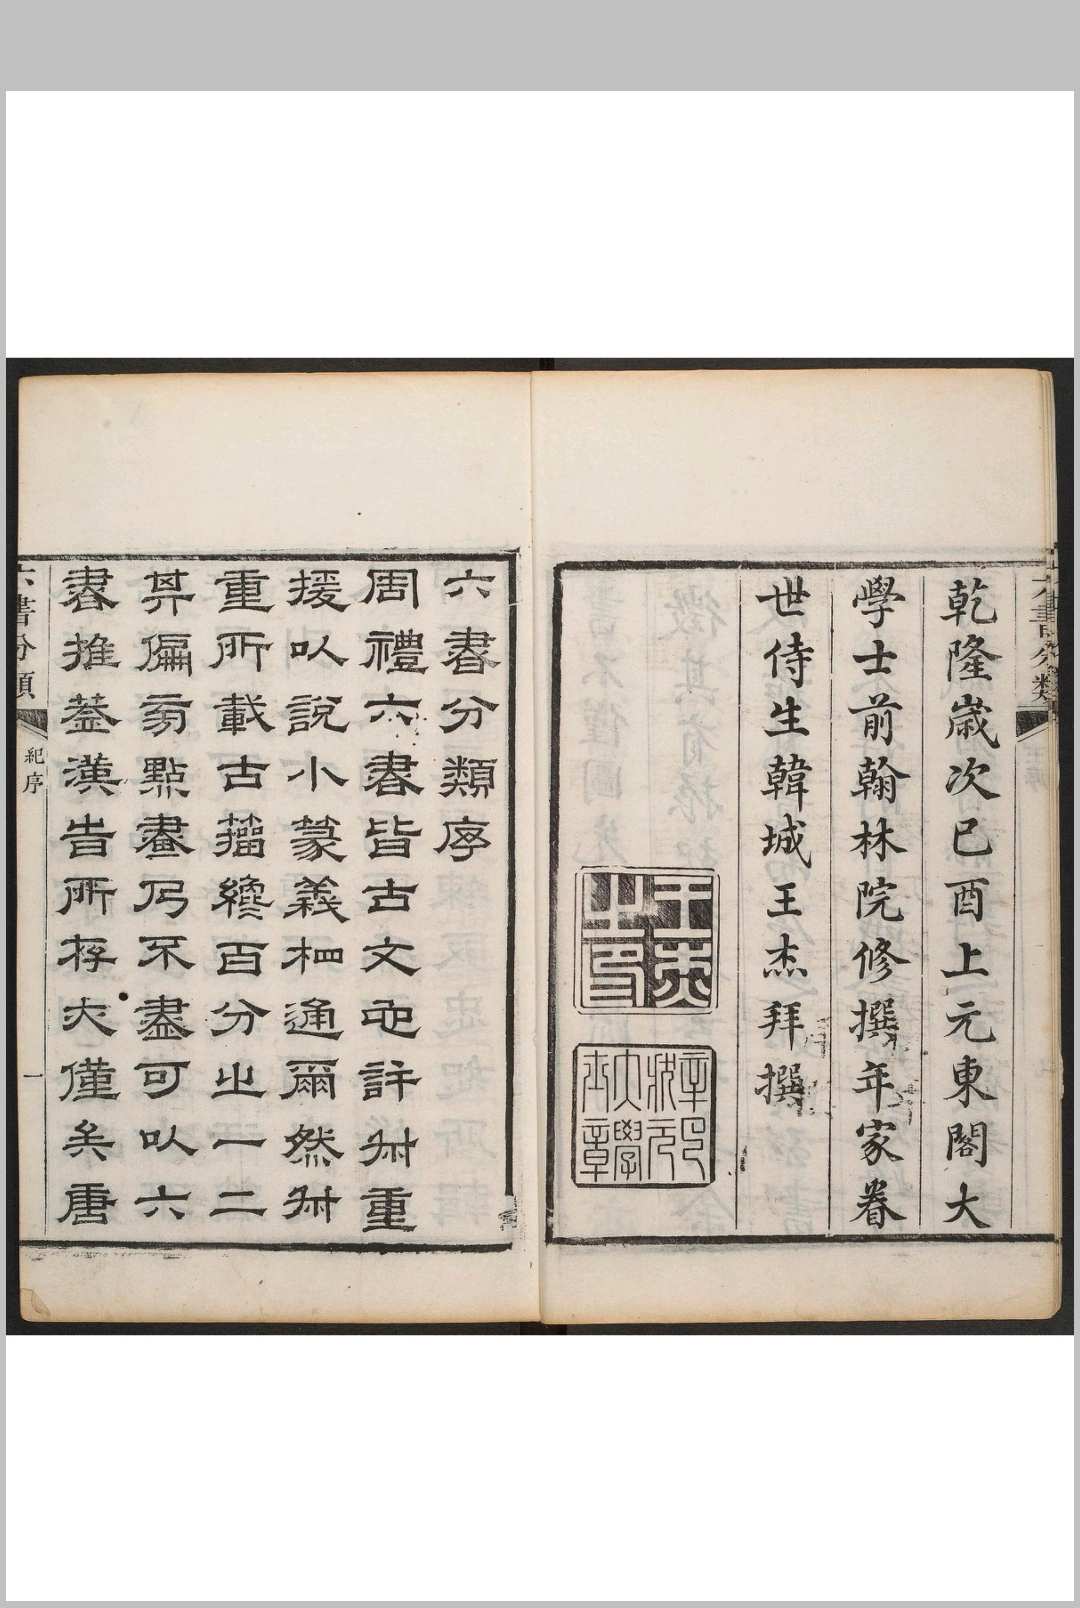 六書分類
乾隆歲次己酉上元東閣大
學士前翰林院修撰年家眷
世侍生韓城王杰拜撰
王杰之印
辛巳狀元大學士章
六書分類序
周禮六書皆古文也許叔重
援以說小篆義相通爾然叔
重所載古籀纔百分之一二
其偏旁點畫仍不盡可以六
書推蓋漢旹所存亦僅矣唐
六書分類
紀序
一